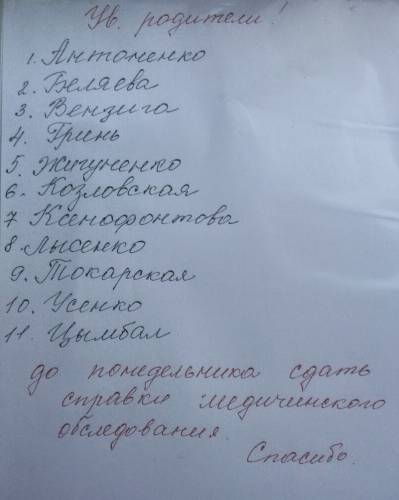 Ув. родители!
1. Антоненко
2. Беляева
3. Вензига
4. Гринь
5. Жигуненко
6. Козловская
7 Ксенофонтова
8. Лысенко
9. Токарская
10. Усенко
11. Цымбал
до понедельника сдать
справки медичинского
обследования
Спасибо.